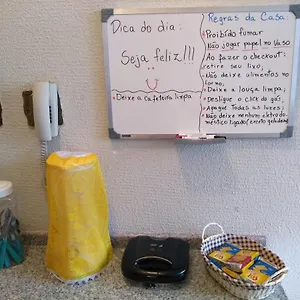 Dica do dia:
Seja feliz!!!
• Deixe a cafeteira limpa
Regras da Casa:
• Proibido fumar
Não jogar papel no vaso
Ao fazer o checkout:
retire seu lixo;
Não deixe alimentos no
Deixe a louça limpa;
• Desligue o do gás;
Apague todas as luzes;
Não deixe nenhum eletrodo-
méstico ligado (exceto geladeira)